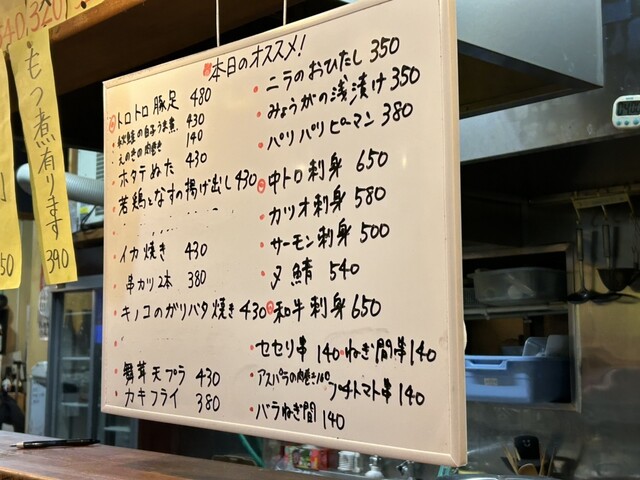 本日のオススメ!
トロトロ豚足 480
秋鮭の白子うま煮 430
えのきの肉巻き 140
ホタテぬた 430
若鶏となすの揚げ出し 430
イカ焼き 430
串カツ2本 380
キノコのガリバタ焼き 430
舞茸天プラ 430
カキフライ 380
ニラのおひたし 350
みょうがの浅漬け 350
パリパリピーマン 380
中トロ刺身 650
カツオ刺身 580
サーモン刺身 500
〆鯖 540
和牛刺身 650
セセリ串 140・ねぎ間串 140
アスパラの肉巻き
プチトマト串 140
バラねぎ間 140
もつ煮有ります 390
50